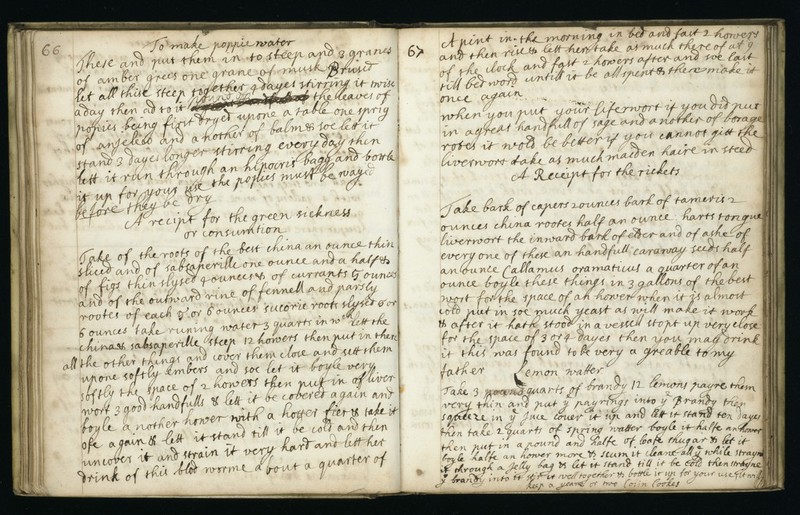 66
To make poppie water
These and put them in to steep and 3 granes
of amber grees one grane of musk Brused
let all thise steep together 4 dayes stirring it twise
a day then ad to it the leaves of
popies being first dryed upone a table one sprig
of angeleco and a nother of balm & soe let it
stand 3 dayes longer stirring every day then
lett it run through an hipocris bagg and bottle
it up for yous use the popies must be
before they be dry
A recipt for the green sickness
or consumtion
Take of the roots of the best china an ounce thin
sliced and of salsaperille one ounce and a half &
of figs thin slysed 4 ounces & of currants 5 ounces
and of the outward rine of fennell and parsly
rootes of each 5 or 6 ounces sucorie roots slysed 5 or
6 ounces take runing water 3 quarts in wch lett the
china & salsaperille steep 12 howers then put in there
all the other things and cover them close and sett them
upone softly embers and soe let it boyle very
softly the space of 2 howers then put in of liver
wort 3 good handfulls & lett it be covered again and
boyle a nother hower with a hotter fier & take it
ofe again & lett it stand till it be cold and then
uncover it and strain it very hard and lett her
drink of this blod worme a bout a quarter of
67
A pint in the morning in bed and fast 2 howers
and then rise & lett her take as much there of at 9
of the clock and fast 2 howers after and soe last
till bed word untill it be all spent & there make it
once again
when you put your liferwort if you did put
in a great handfull of sage and another of borage
rotes it would be better if you cannot gitt the
liverwort take as much maiden haire in steed
A Receipt for the rickets
Take bark of capers 2 ounces bark of tameris 2
ounces china rootes half an ounce harts tongue
livermort the inward bark of elder and of ashe of
every one of these an handfull caraway seeds half
an ounce Callamus oramaticus a quarter of an
ounce boyle these things in 3 gallons of the best
wort for the space of an hower when it is almost
cold put in soe much yeast as will make it work
& after it hath stood in a vessell stopt up very close
for the space of 3 or 4 dayes then you may drink
it this was found to be very a greable to my
father
Lemon water
Take 3 quarts of brandy 12 lemons payre them
very thin and put ye payrings into ye Brandy then
squeeze in ye Juce cover it up and lett it stand ten dayes
then take 2 quarts of spring watter boyle it halfe an hower
then put in a pound and halfe of lofe shugar & let it
boyle halfe an hower more & scum it cleane all ye while strayne
it through a Jelly bag & let it stand till it be cold then strayne
ye brandy into it stir it well together & bottle it up for your use it will
keep a yeare or two Cosin Cookes